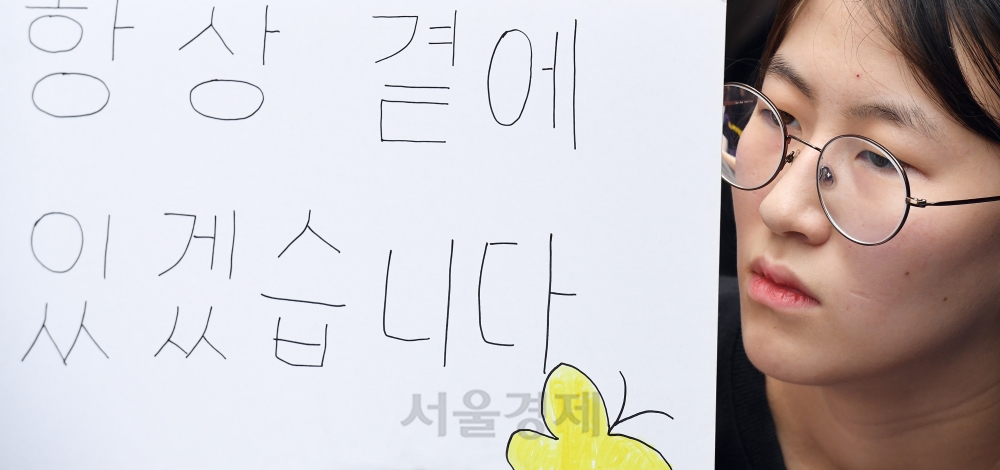 항상 곁에
있겠습니다
서울경제